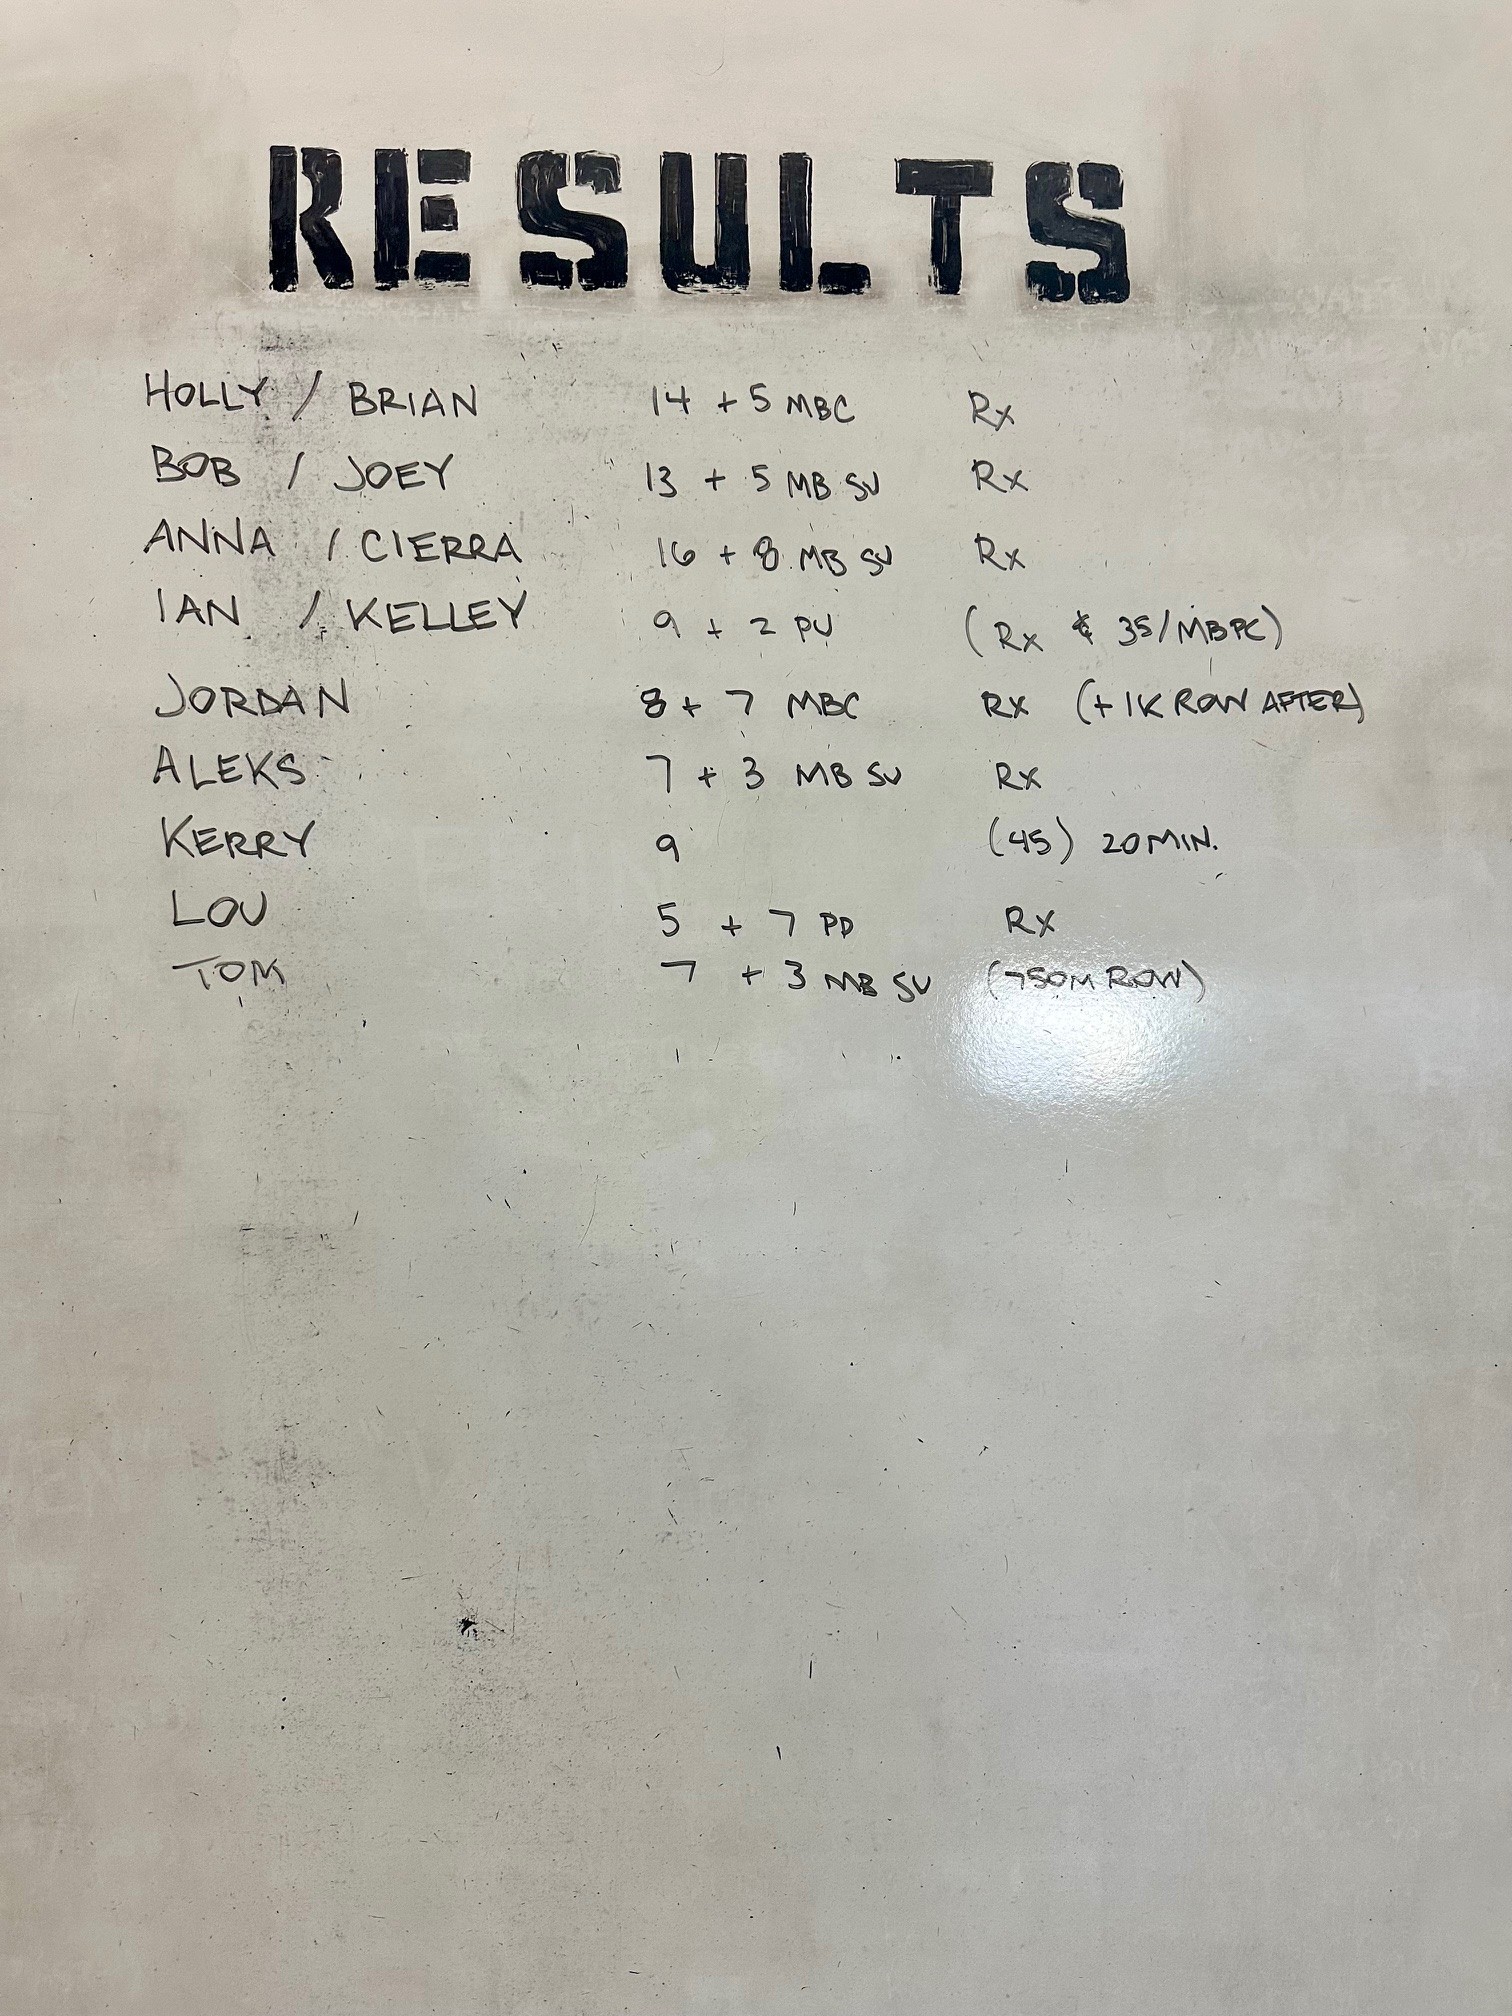 RESULTS
HOLLY / BRIAN 14 + 5 MBC Rx
BOB / JOEY 13 + 5 MB SU Rx
ANNA / CIERRA 16 + 8 MB SU Rx
IAN / KELLEY 9 + 2 PU (Rx & 35/MBPC)
JORDAN 8 + 7 MBC Rx (+ 1K ROW AFTER)
ALEKS 7 + 3 MB SU Rx
KERRY 9 (45) 20 MIN.
LOU 5 + 7 PD Rx
TOM 7 + 3 MB SU (750M ROW)